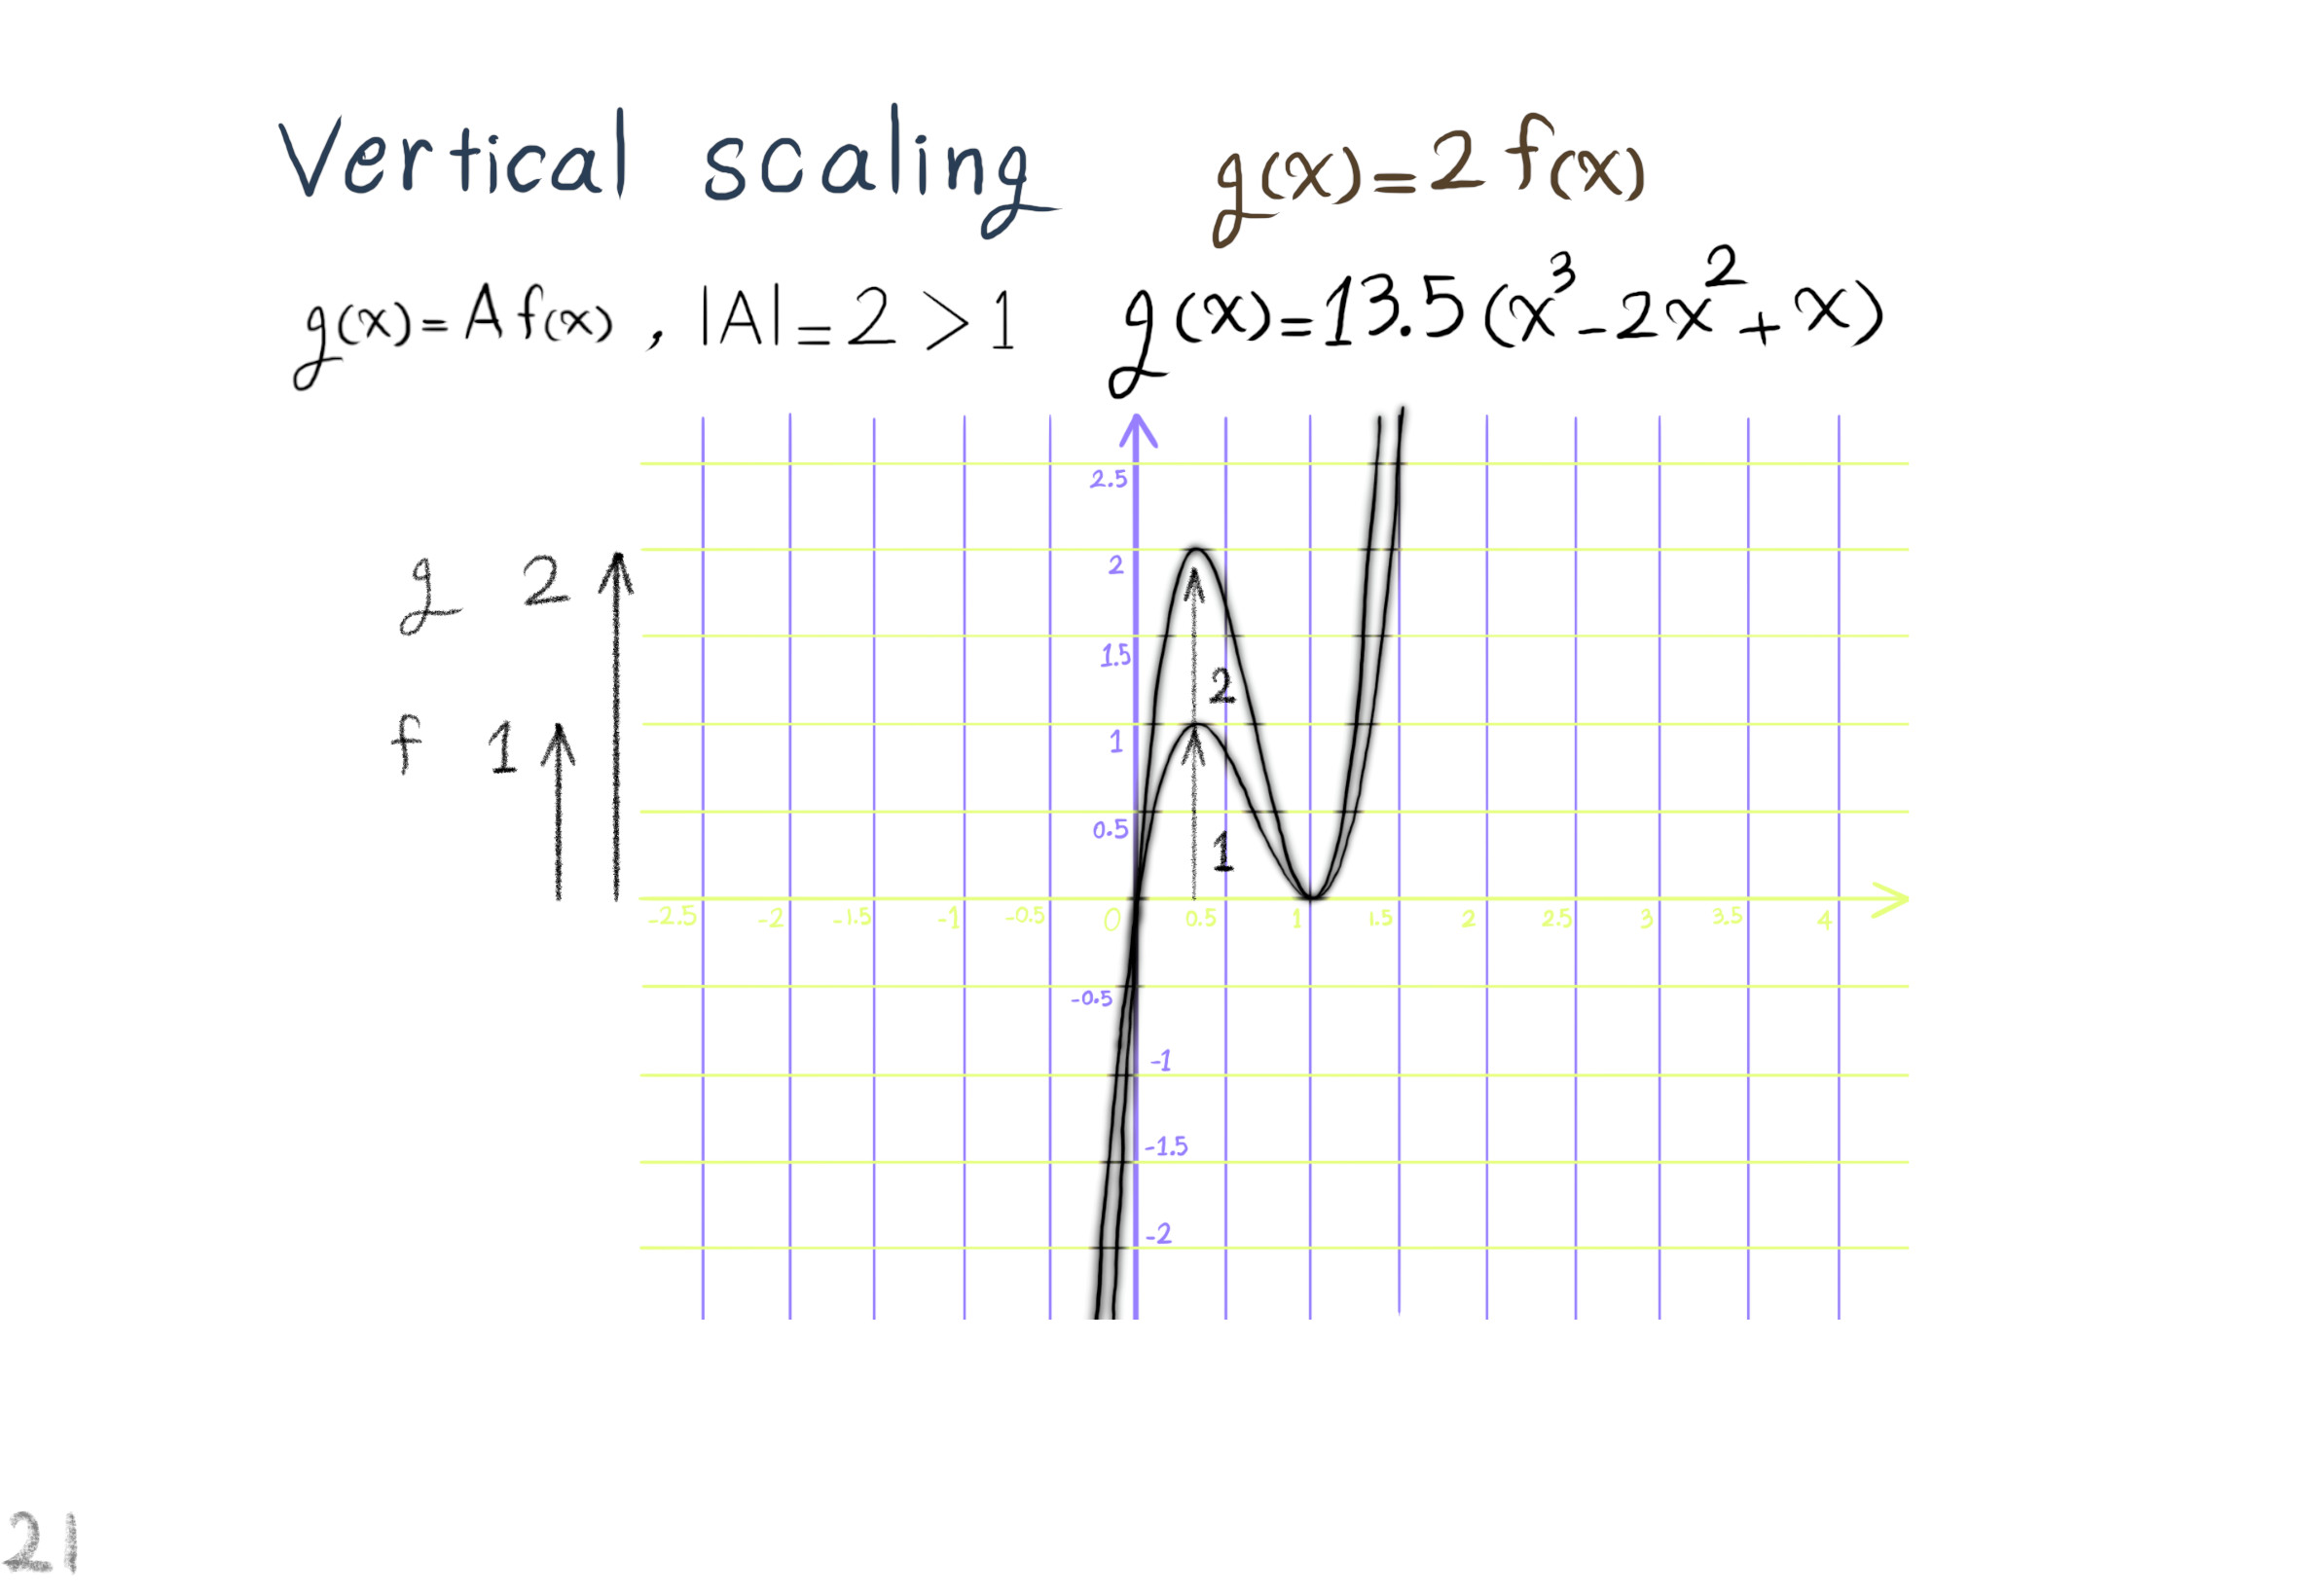 Vertical scaling g(x)=2f(x)
g(x)=Af(x), |A|=2>1 g(x)=13.5(x³-2x²+x)
2.5
g 2
2
1.5
2
f 1
1
0.5
1
-2.5 -2 -1.5 -1 -0.5 0 0.5 1 1.5 2 2.5 3 3.5 4
-0.5
-1
-1.5
-2
21